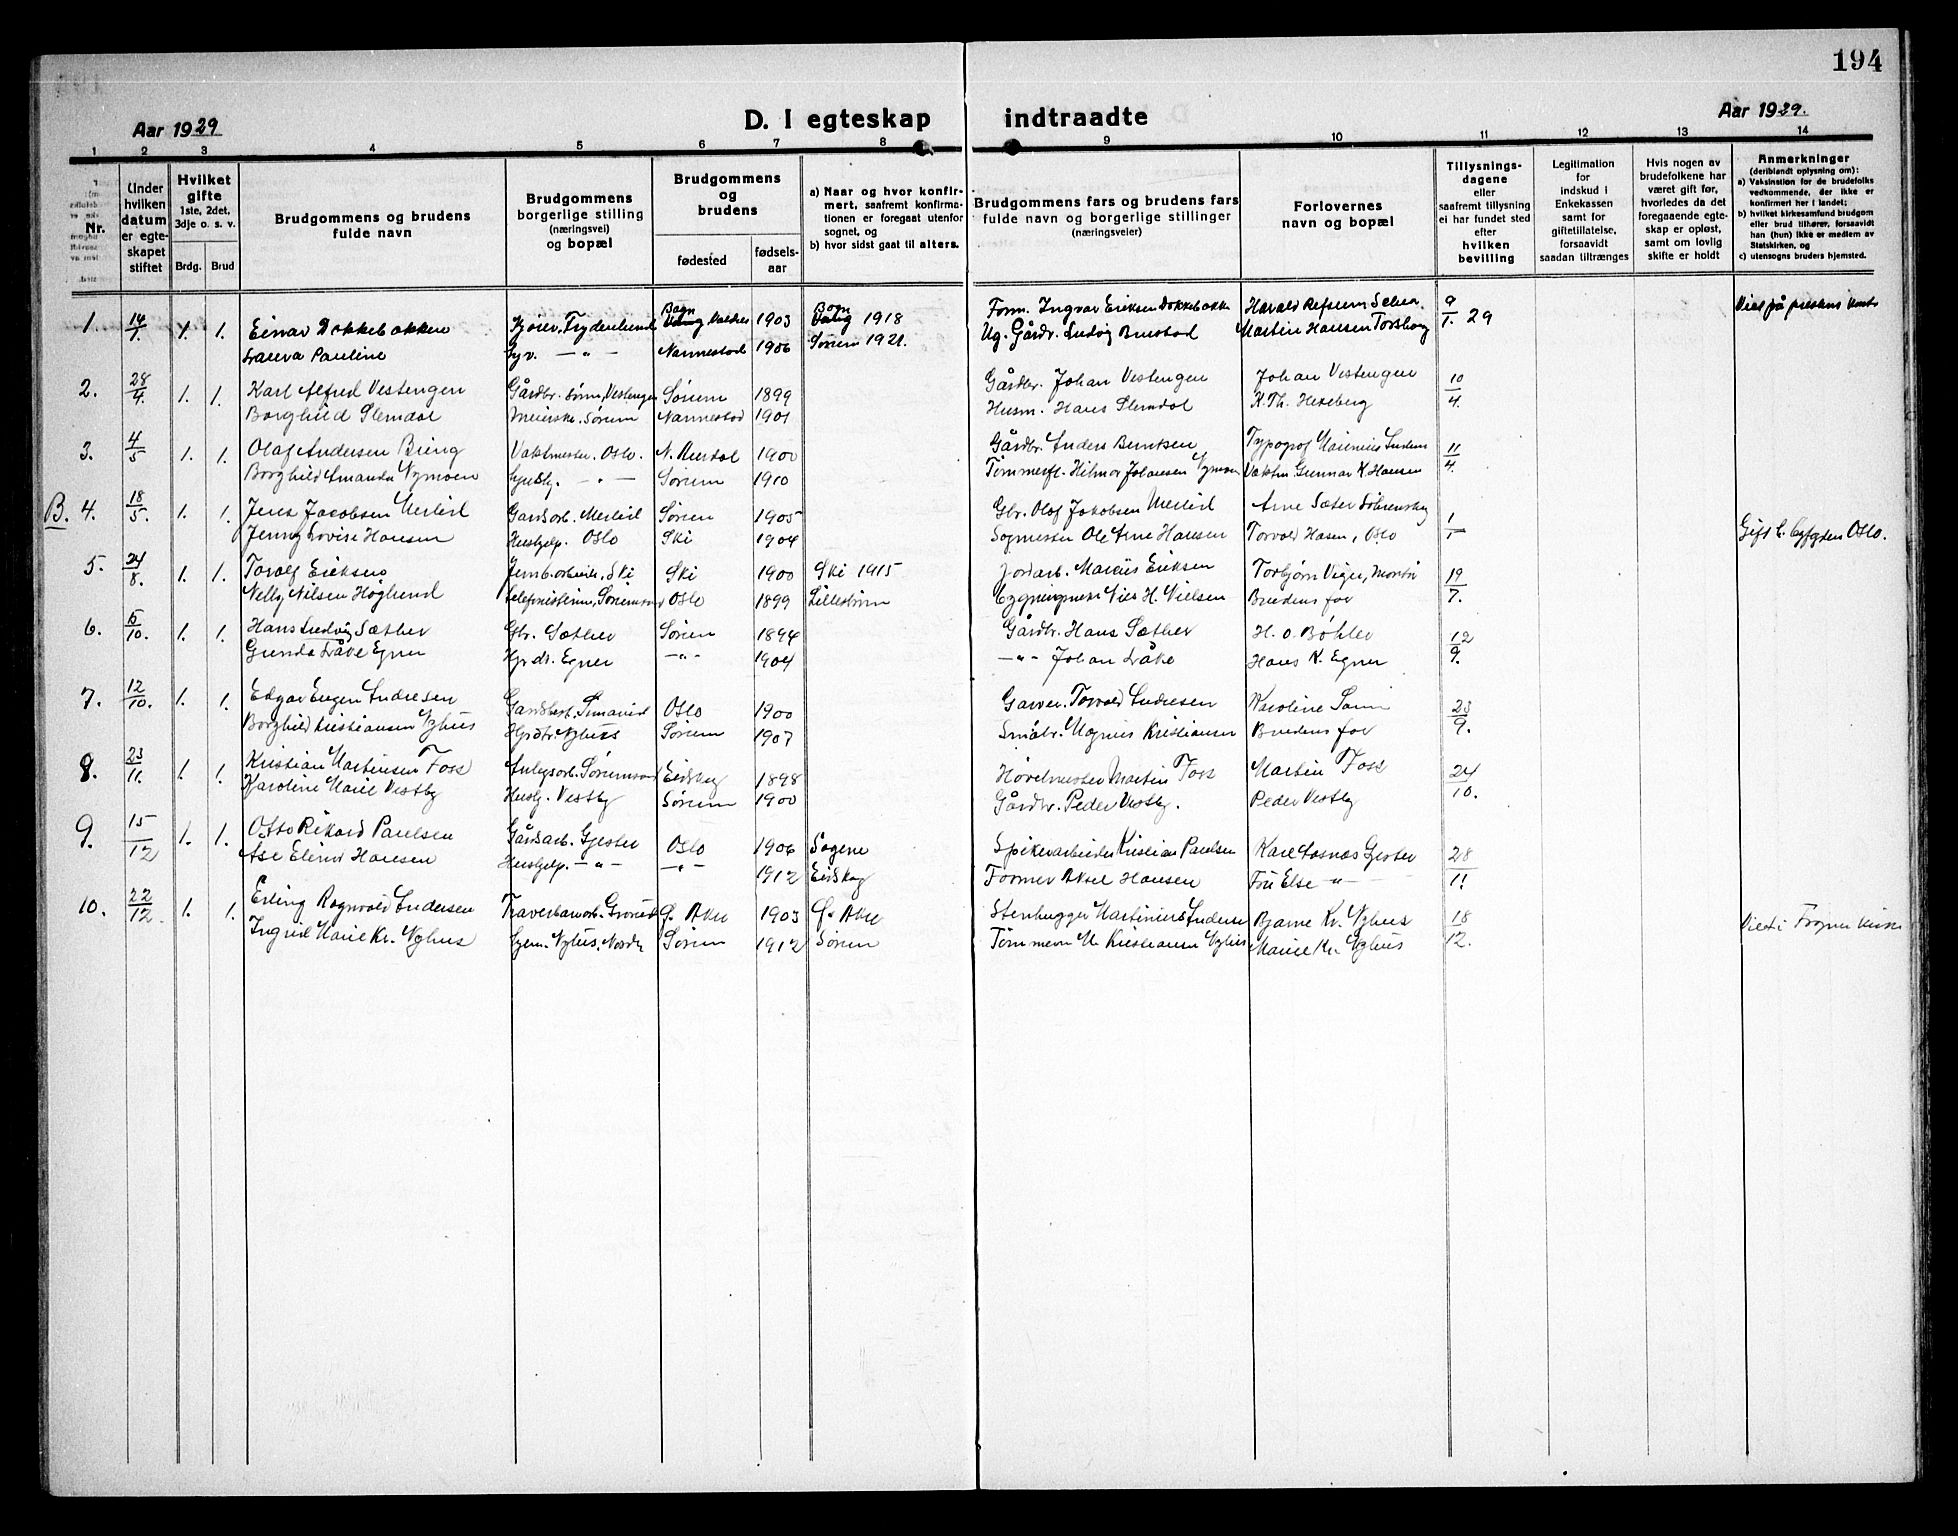 194
Aar 1929
D. I egteskap indtraadte
Aar 1929.
1 2 3 4 5 6 7 8 9 10 11 12 13 14
Nr.
Under hvilken datum er egteskapet stiftet
Hvilket gifte 1ste, 2det, 3dje o. s. v.
Brdg. Brud
Brudgommens og brudens fulde navn
Brudgommens borgerlige stilling (næringsvei) og bopæl
Brudgommens og brudens
fødested fødselsaar
a) Naar og hvor konfirmert, saafremt konfirmationen er foregaat utenfor sognet, og
b) hvor sidst gaat til alters.
Brudgommens fars og brudens fars fulde navn og borgerlige stillinger (næringsveier)
Forlovernes navn og bopæl
Tillysningsdagene eller saafremt tillysning ei har fundet sted efter hvilken bevilling
Legitimation for indskud i Enkekassen samt for giftetillatelse, forsaavidt saadan tiltrænges
Hvis nogen av brudefolkene har været gift før, hvorledes da det foregaaende egteskap er opløst, samt om lovlig skifte er holdt
Anmerkninger (deriblandt oplysning om):
a) Vaksination for de brudefolks vedkommende, der ikke er konfirmert her i landet;
b) hvilket kirkesamfund brudgom eller brud tilhører, forsaavidt han (hun) ikke er medlem av Statskirken, og
c) utensogns bruders hjemsted.
1. 14/1 1. 1. Einar Dokkebakken Tryderlund Bagn Valdres 1903 Bagn 1918 Form. Ingvar Eriksen Dokkebakke Harald Refsum 9/1. 29 Viet på prestens kont.
Laura Pauline Syv. —"— Nannestad 1906 Sørum 1921. Ug. Gårdbr. Ludvig Brustad Martin Hansen Torshaug
2. 28/4. 1. 1. Karl Alfred Vestengen Gårdbr. sønn, Vestengen Sørum 1899 Gårdbr. Johan Vestengen Johan Vestengen 10/4.
Borghild Slemdal Meierske. Sørum Nannestad 1901 Husm. Hans Slemdal K. Th. Hexeberg
3. 4/5 1. 1. Olaf Andersen Vaktmester. Oslo. 1900 Gårdbr. Anders Berntsen Typograf 11/4.
Borghild Amanda Nymoen —"— Sørum 1910 Tømmerfl. Hilmar Johansen Nymoen Gunnar K. Hansen
B. 4. 18/5. 1. 1. Jens Jacobsen Merlid Gårdsarb. Merlid Sørum 1905 Gbr. Olaf Jakobsen Merlid Arne Sæter 1/
Jenny Lovise Hansen Hushjelp. Oslo Ski 1904 Sagmester Ole Arne Hansen Torvald Hasen, Oslo Gift b. byfogden Oslo.
5. 24/8. 1. 1. Torolf Eriksen Jernb. arbeid., Ski Ski 1900 Ski 1915 Jordarb. Marius Eriksen Torbjørn Viger, 19/7.
Nelly Nilsen Höglund Oslo 1899 Lillestrøm Nils H. Nielsen Brudens far
6. 6/10. 1. 1. Hans Ludvig Sæther Gbr. Sæther Sørum 1894 Gårdbr. Hans Sæther H. O. Böhler 12/9.
Gunda Låke Egner Egner —"— 1904 —"— Johan Låke Hans K. Egner
7. 12/10. 1. 1. Edgar Eugen Andresen Oslo 1900 Garver. Torvald Andresen Karoline 23/9.
Borghild Kristiansen Nyhus Nyhus Sørum 1907 Småbr. Magnus Kristiansen Brudens far
8. 23/11. 1. 1. Kristian Martinsen Foss Anlegsarb. Sørumsand Eidskog 1898 Høvelmester Martin Foss Martin Foss 24/10.
Karoline Marie Vestby Vestby Sørum 1900 Gårdbr. Peder Vestby. Peder Vestby
9. 15/12 1. 1. Otto Rikard Paulsen Gårdsarb. Gjester Oslo 1906 Sagene Spikerarbeider Kristian Paulsen Karl Gjester 28/11
Åse Hansen Hushjelp. —"— —"— 1912 Eidskog Former Aksel Hansen Fru Else —"—
10. 22/12. 1. 1. Erling Ragnvald Andersen Ø. Aker 1903 Ø. Aker Stenhugger Martinius Andersen Bjarne Kr. Nyhus 18/12. Viet i Frogner kirke
Ingrid Marie Kr. Nyhus Hjem. Nyhus, Sørum 1912 Sørum Tømmerm. M. Kristiansen Nyhus Marie Kr. Nyhus